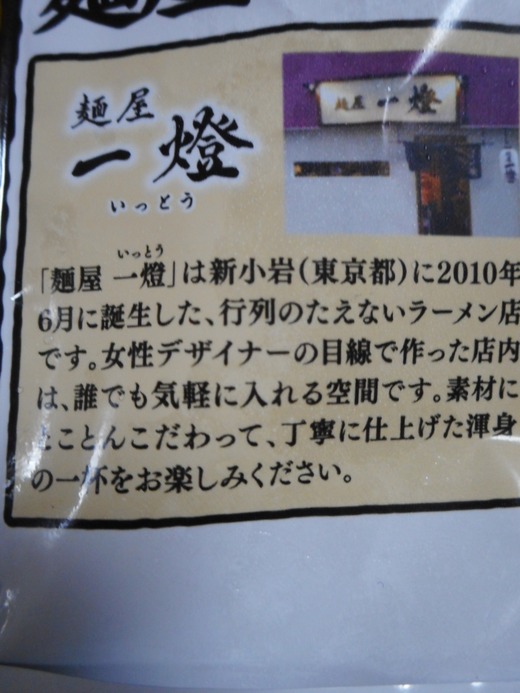 麺屋
麺屋
一燈
いっとう
麺屋 一燈
いっとう
「麺屋 一燈」は新小岩(東京都)に2010年
6月に誕生した、行列のたえないラーメン店
です。女性デザイナーの目線で作った店内
は、誰でも気軽に入れる空間です。素材に
とことんこだわって、丁寧に仕上げた渾身
の一杯をお楽しみください。